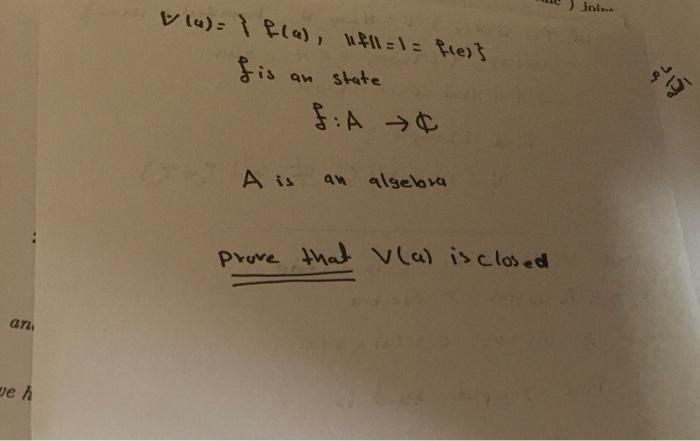 ) joint
V(a) = { f(a), ||f|| = 1 = f(e)}
f is an state
f : A → ℂ
A is an algebra
prove that V(a) is closed
an
ve h